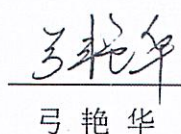 弓艳华
弓 艳 华